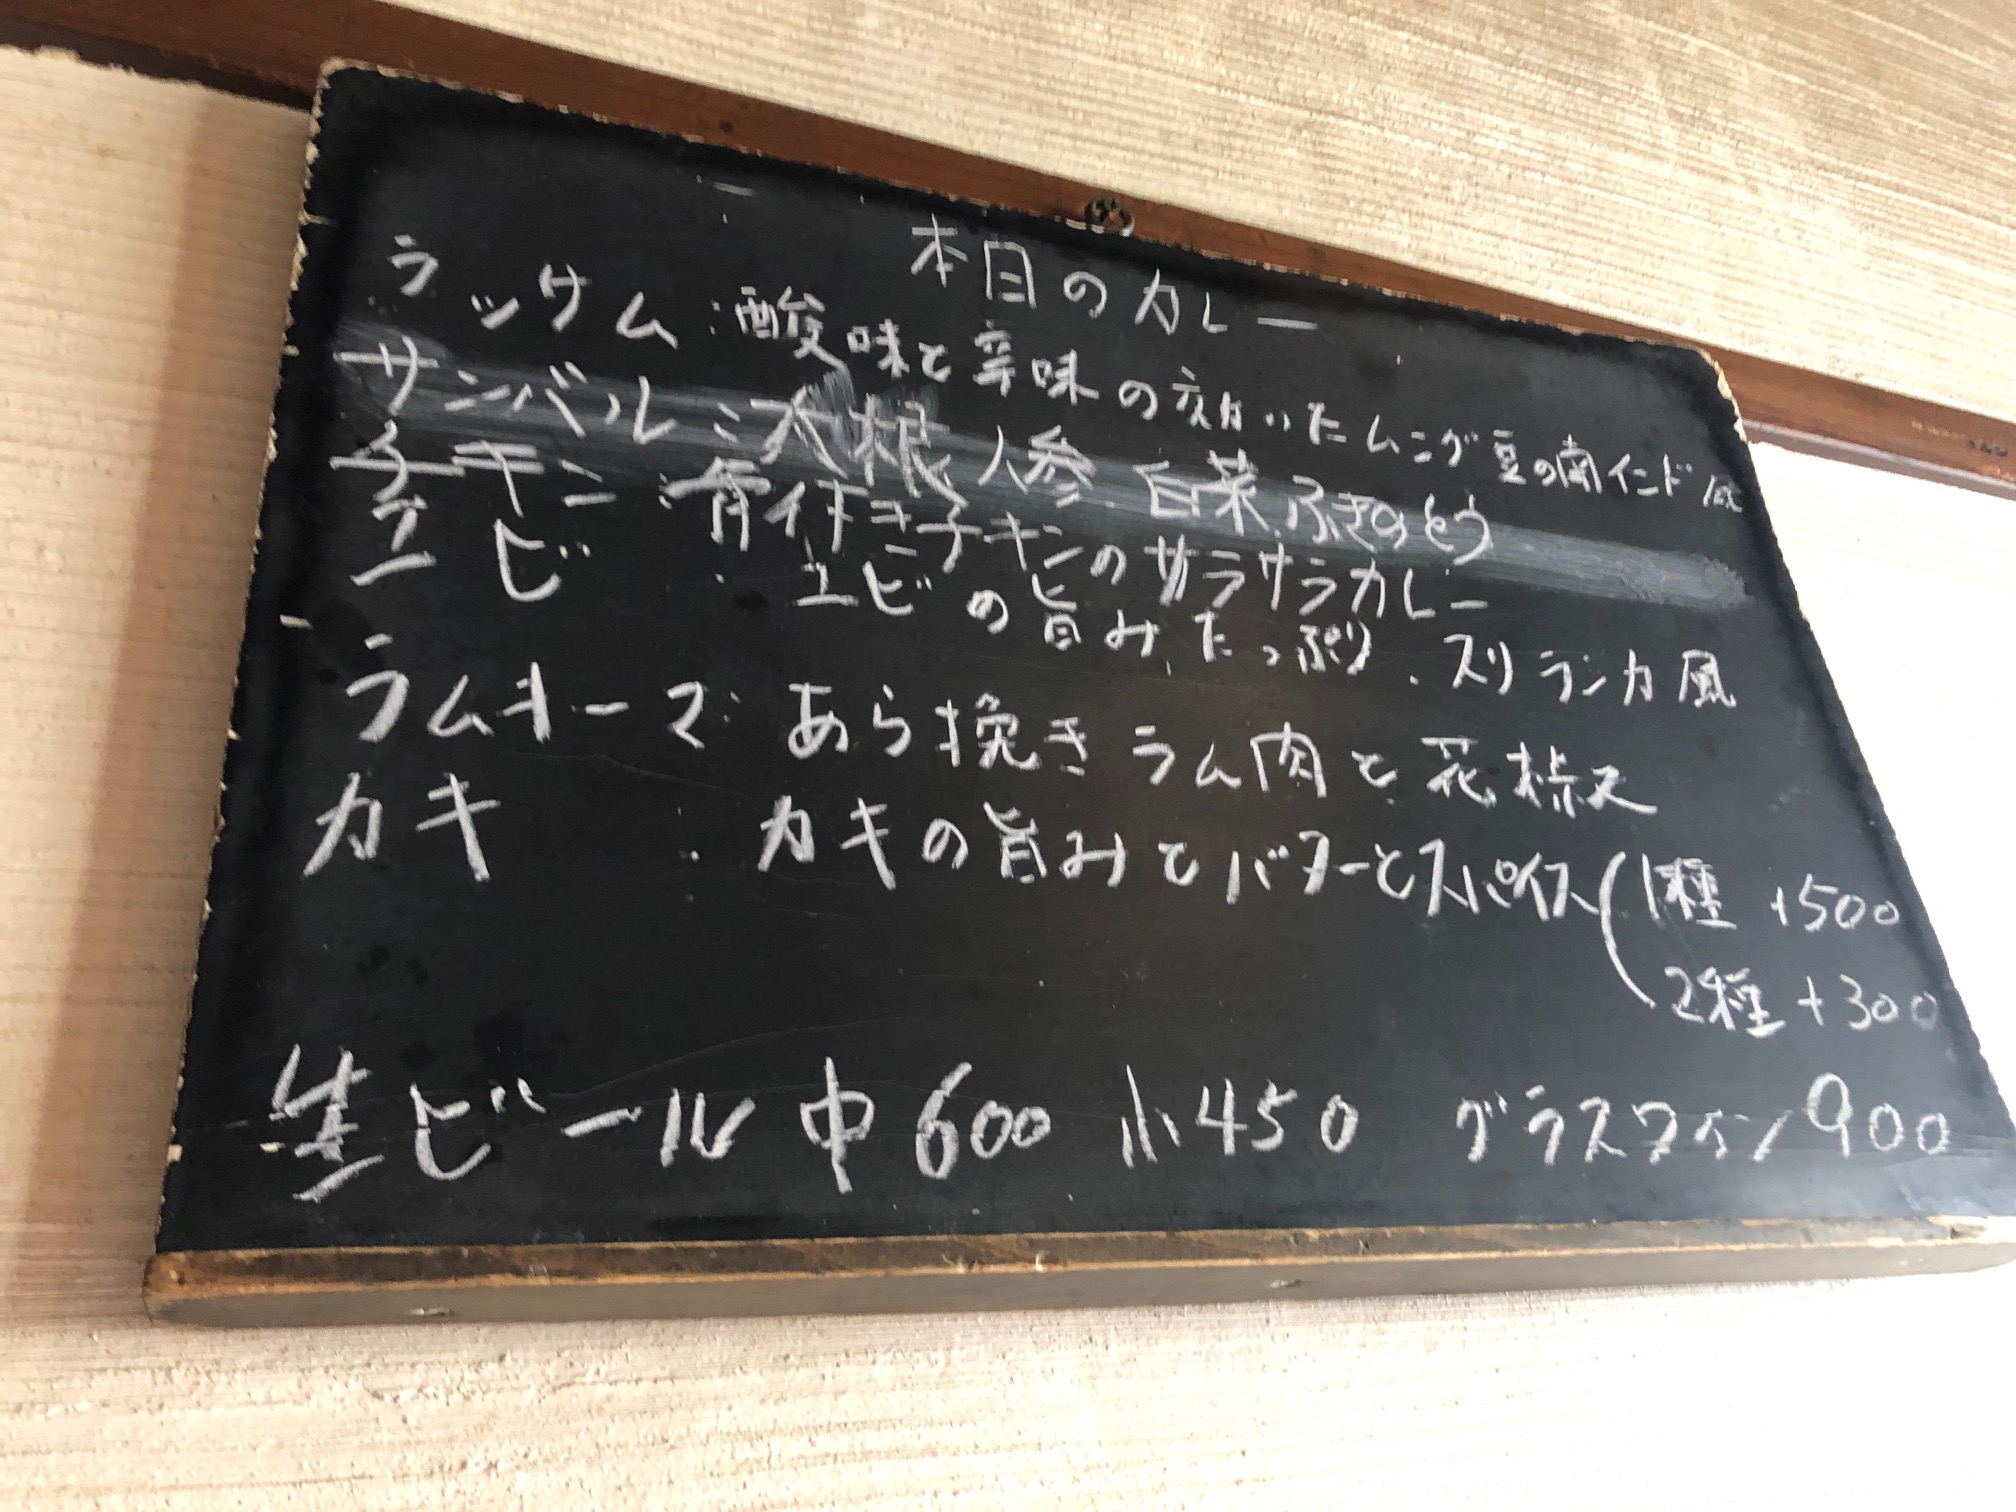 本日のカレー
ラッサム:酸味と辛味の効いたムング豆の南インド風
サンバル:大根 人参 白菜 ふきのとう
チキン:骨付きチキンのサラサラカレー
エビ:エビの旨みたっぷり、スリランカ風
ラムキーマ:あら挽きラム肉と花椒
カキ:カキの旨みとバターとスパイス(1種 +500
2種 +300
生ビール 中600 小450 グラスワイン900